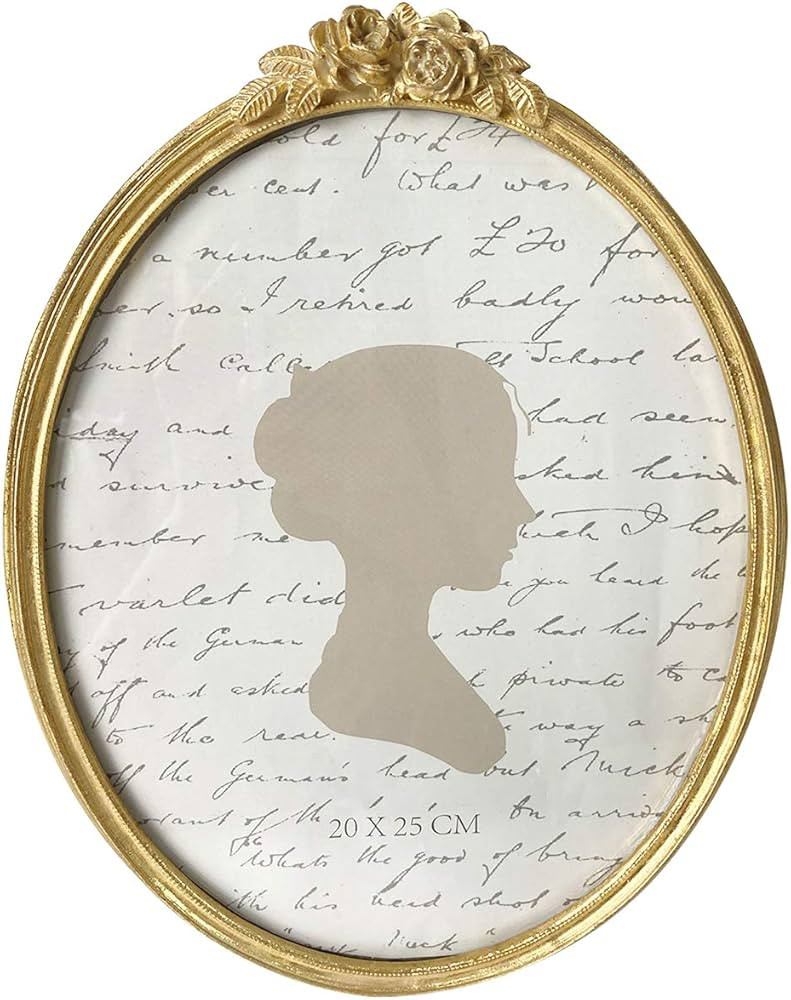 old for £24
per cent. What was
a number got £20 for
ever, so I retired badly wou
Smith Calle School la
day and had seen
d survive asked him
member me which I hop
varlet did you heard the
y of the German who had his foot
d off and asked private to ca
to the rear. way a sh
off the German's head but Mick
vant of the An arriva
20 X 25 CM
"Whats the good of bring
with his head shot o
luck"